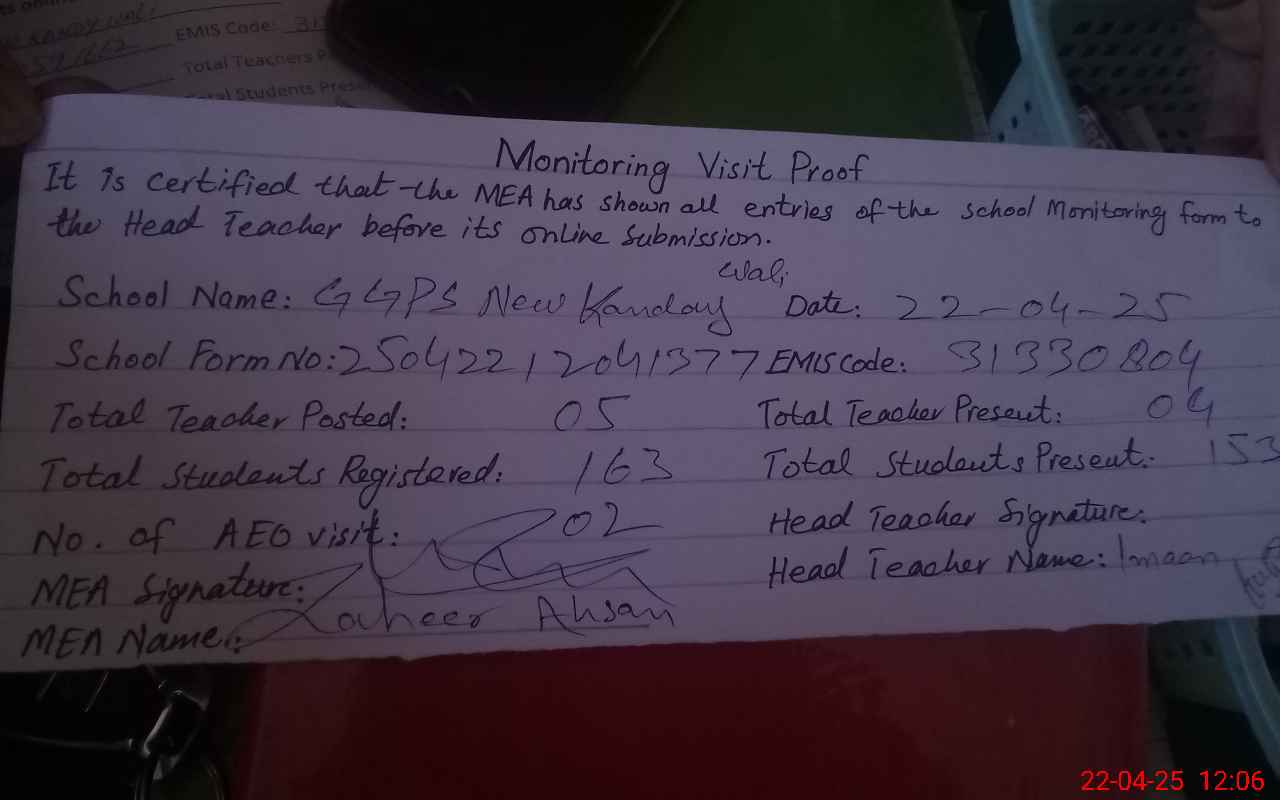 KANDY WALI
EMIS Code: 31
Total Teachers P
Total Students Presen
Monitoring Visit Proof
It is certified that the MEA has shown all entries of the school Monitoring form to
the Head Teacher before its online submission.
School Name: GGPS New Kanday Wali Date: 22-04-25
School Form No: 25042212041377 EMIS code: 31330804
Total Teacher Posted: 05 Total Teacher Present: 04
Total Students Registered: 163 Total Students Present: 153
No. of AEO visit: 02 Head Teacher Signature:
MEA Signature: Head Teacher Name: Imaan
MEA Name: Zaheer Ahsan
22-04-25 12:06